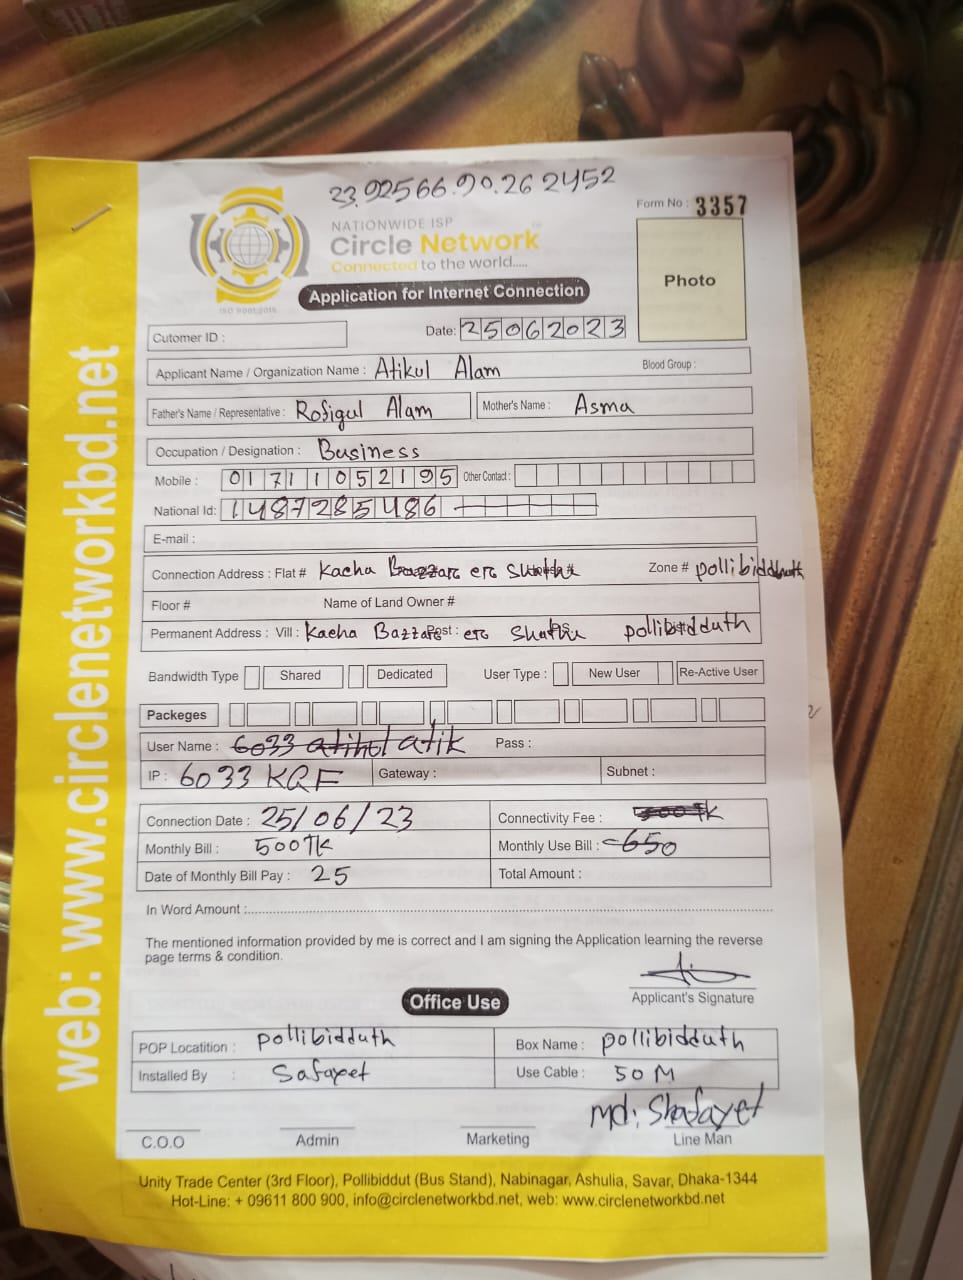 33.92566.90.26 2452
Form No : 3357
NATIONWIDE ISP
Circle Network
Connected to the world.....
ISO 9001:2015
Photo
Application for Internet Connection
Cutomer ID :
Date: 25062023
Applicant Name / Organization Name : Atikul Alam Blood Group :
Father's Name / Representative : Rofiqul Alam Mother's Name : Asma
Occupation / Designation : Business
Mobile : 01711052195 Other Contact :
National Id: 1487285486
E-mail :
Connection Address : Flat # Kacha Bazzare ere Zone # pollibidduth
Floor # Name of Land Owner #
Permanent Address : Vill : Kacha Bazzare Post : ere Shathu PS: pollibidduth
Bandwidth Type Shared Dedicated User Type : New User Re-Active User
Packeges
User Name : 6033 atikul atik Pass :
IP : 6033 KQF Gateway : Subnet :
Connection Date : 25/06/23 Connectivity Fee : 500 TK
Monthly Bill : 500 TK Monthly Use Bill : 650
Date of Monthly Bill Pay : 25 Total Amount :
In Word Amount :
The mentioned information provided by me is correct and I am signing the Application learning the reverse
page terms & condition.
Applicant's Signature
Office Use
POP Locatition : pollibidduth Box Name : pollibidduth
Installed By : Safayet Use Cable : 50 M
Md: Shafayet
C.O.O Admin Marketing Line Man
Unity Trade Center (3rd Floor), Pollibiddut (Bus Stand), Nabinagar, Ashulia, Savar, Dhaka-1344
Hot-Line: + 09611 800 900, info@circlenetworkbd.net, web: www.circlenetworkbd.net
web: www.circlenetworkbd.net